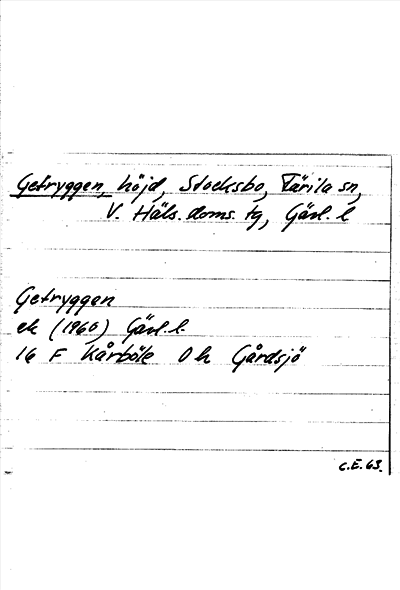 Getryggen, höjd, Stocksbo, Färila sn,
V. Häls. doms. tg, Gävl. l
Getryggen
ek (1960) Gävl. l.
16 F Kårböle Oh Gårdsjö
C.E. 63.